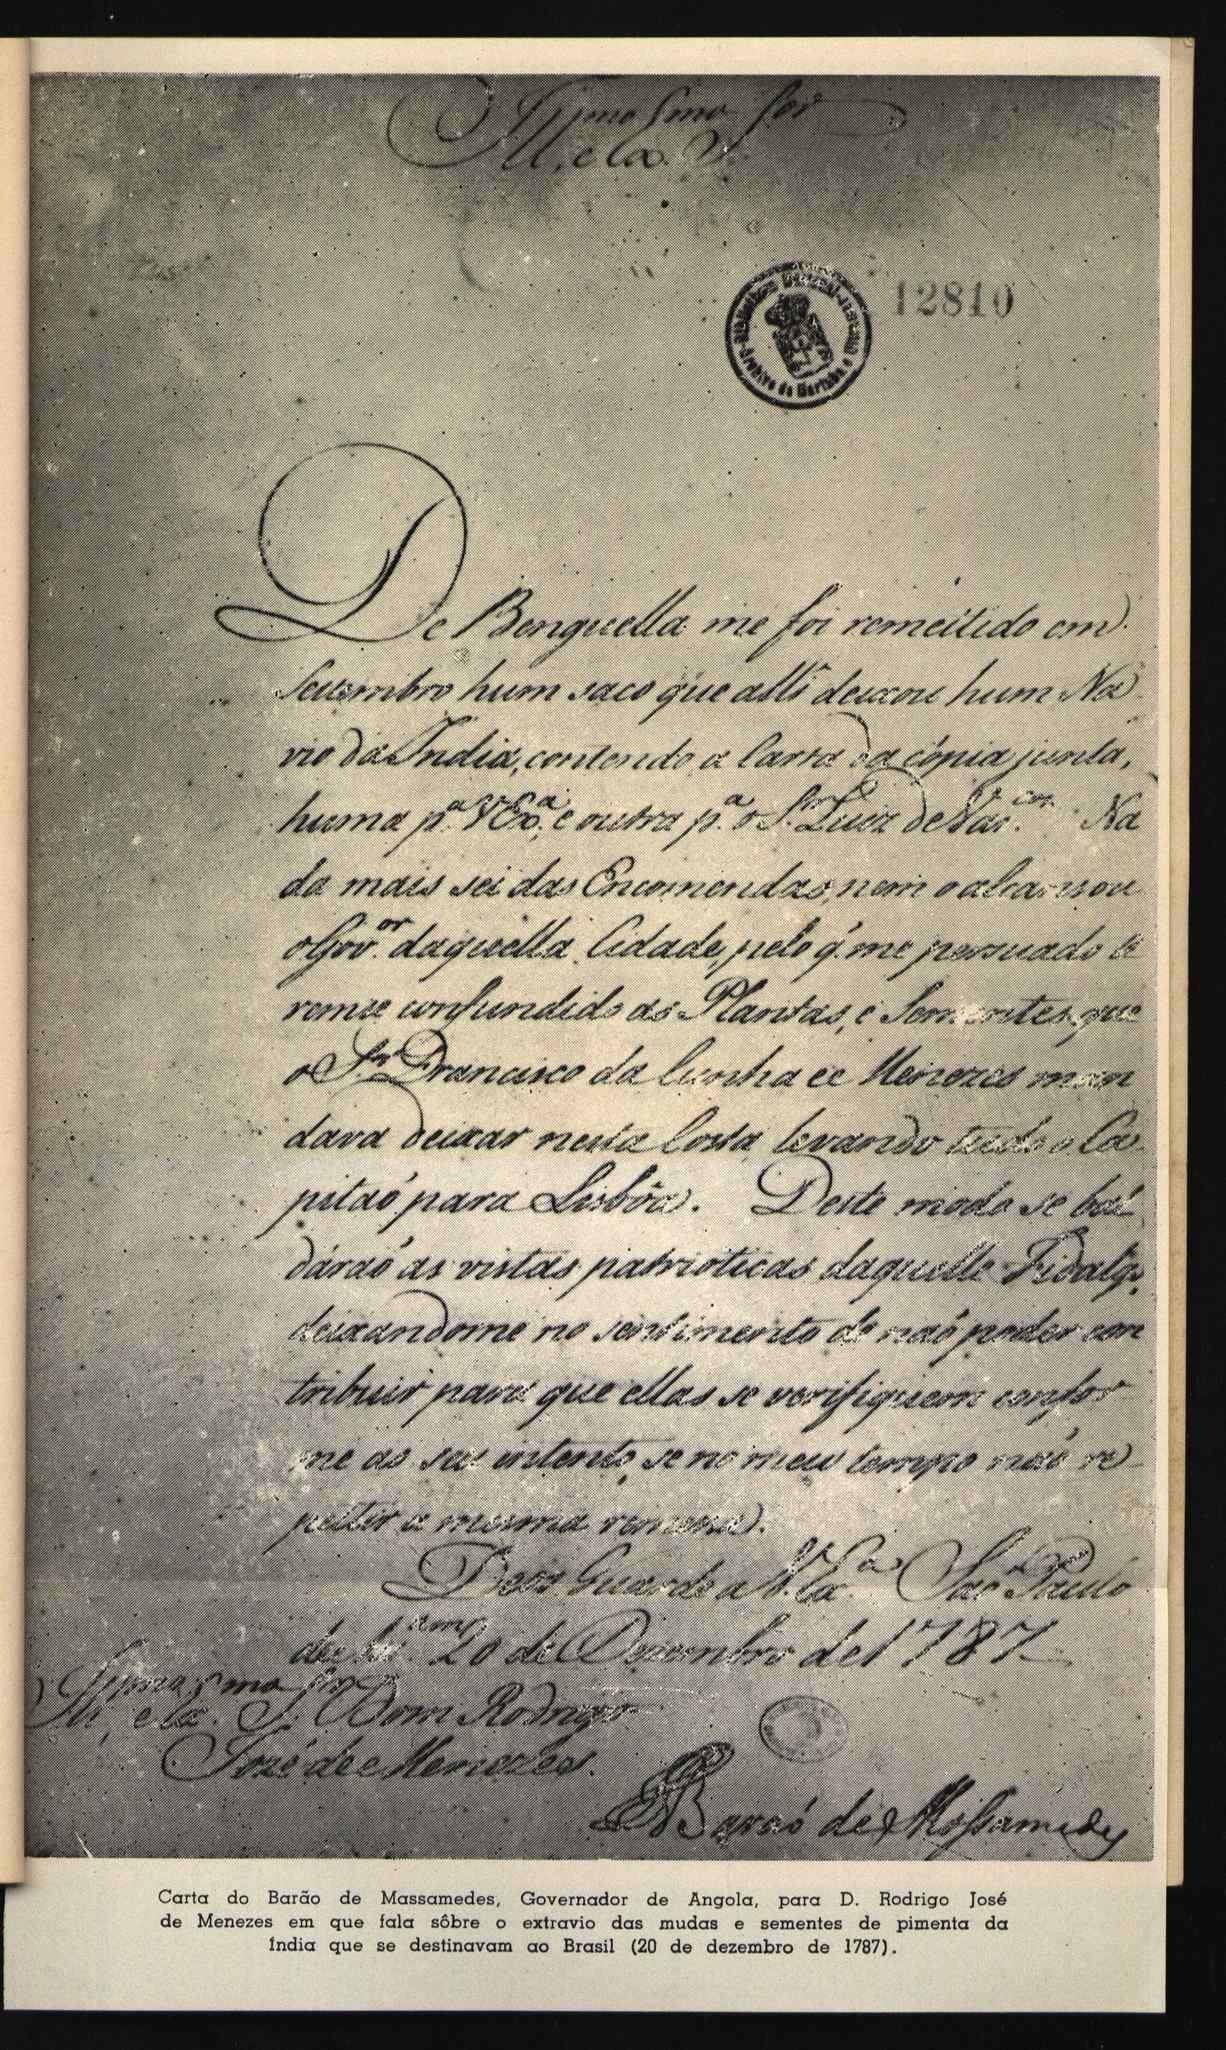 Ill.mo e Ex.mo S.or
12810
De Benguella me foi remettido em
Setembro hum saco que alli deixou hum Na
vio da India, contendo a Carta da cópia junta,
huma p.a V Ex.a, e outra p.a o S.r Luiz de Vas.cos Na
da mais sei das Encomendas, nem o alcansou
o Gov.or daquella Cidade, pelo q. me persuado te
remse confundido as Plantas, e Sementes, que
o S.r Francisco da Cunha e Menezes man
dava deixar nesta Costa levando tudo o Ca
pitaõ para Lisbôa. Deste modo se bal
dáraõ as vistas patrioticas daquelle Fidalgo,
deixandome no sentimento de naõ poder con
tribuir para que ellas se verifiquem confor
me ao seu intento, se no meu tempo naõ re
petir a mesma remessa.
Deos Guarde a V. Ex.a Saõ Paulo
de 20 de Dezembro de 1787
Ill.mo e Ex.mo S.or Dom Rodrigo
Jozé de Menezes.
Baraõ de Mossamedes
Carta do Barão de Massamedes, Governador de Angola, para D. Rodrigo José
de Menezes em que fala sôbre o extravio das mudas e sementes de pimenta da
Índia que se destinavam ao Brasil (20 de dezembro de 1787).